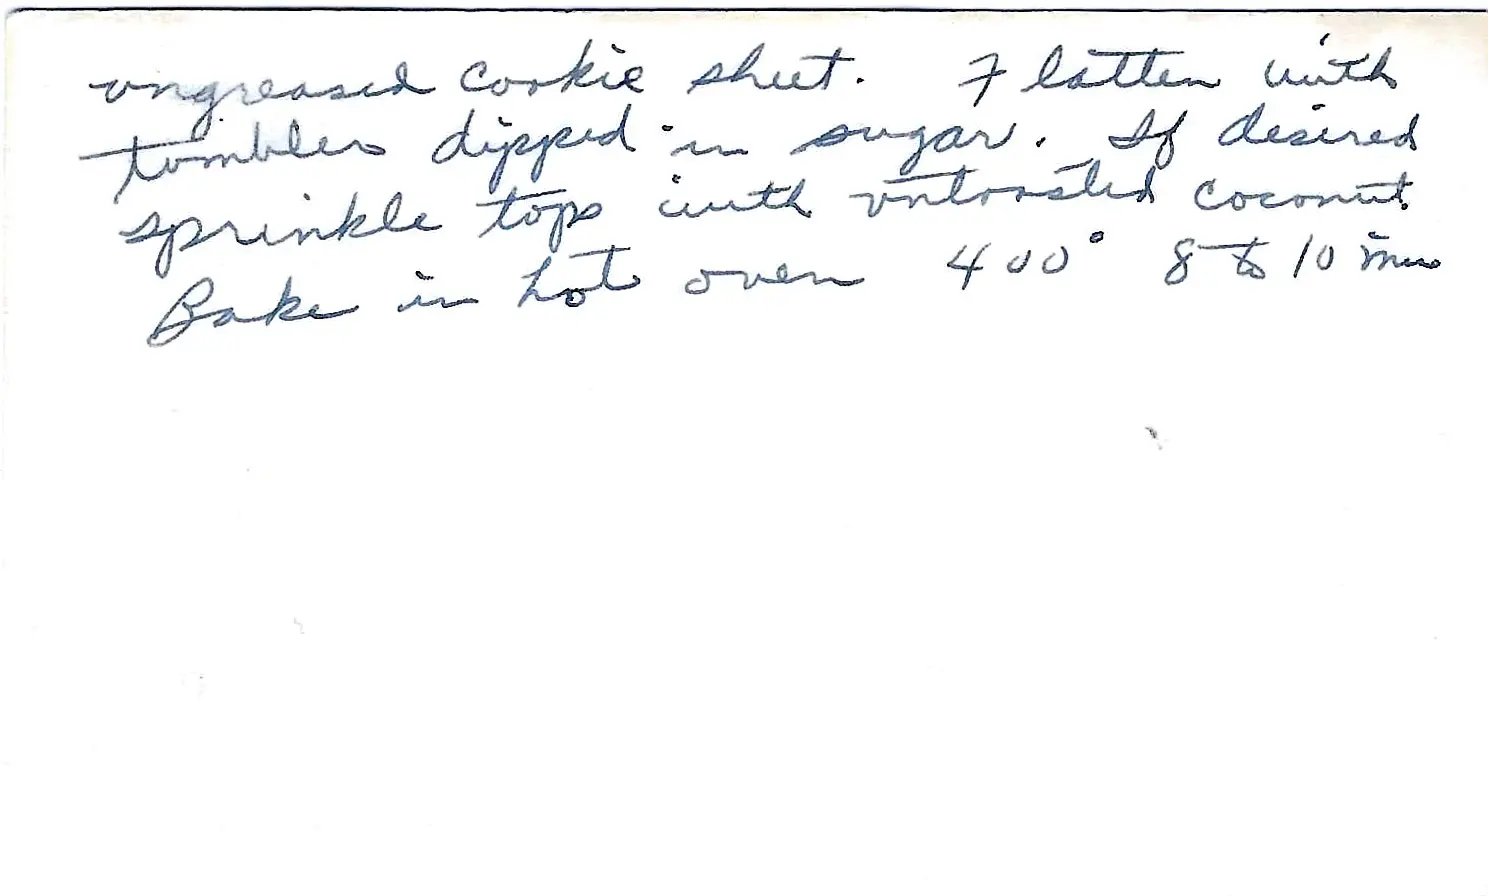 ungreased cookie sheet. Flatten with
tumbler dipped in sugar. If desired
sprinkle tops with untoasted coconut.
Bake in hot oven 400° 8 to 10 min